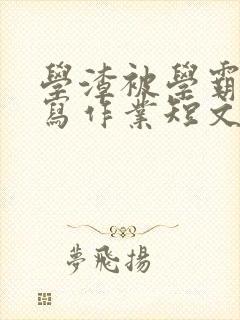 學渣被學霸
寫作業短文
夢飛揚